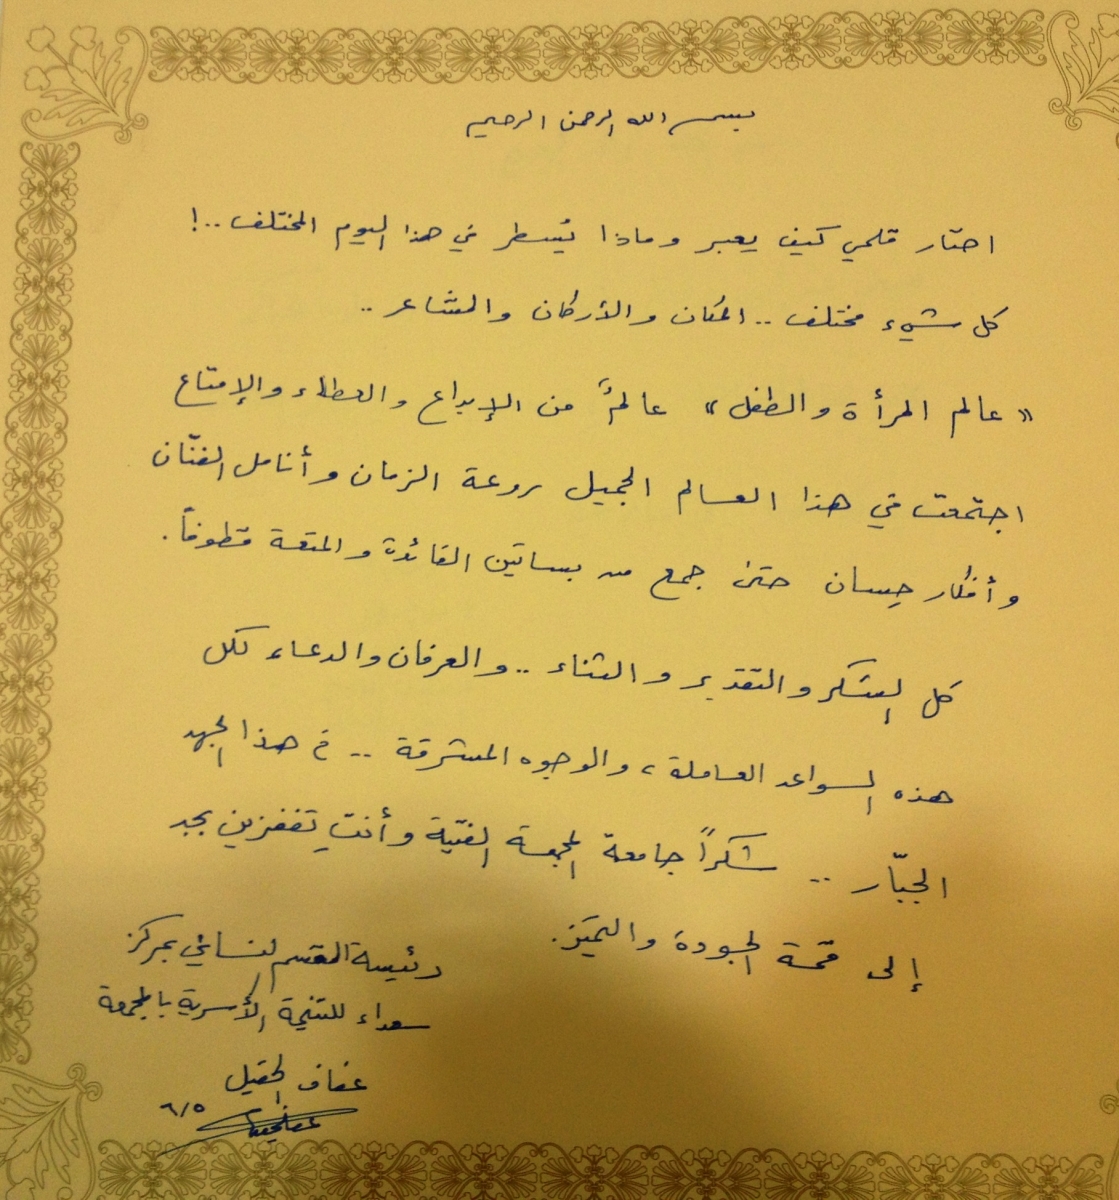 بسم الله الرحمن الرحيم
احتار قلمي كيف يعبر وماذا يُسطر في هذا اليوم المختلف ..!
كل شيء مختلف .. المكان والأركان والمشاعر ..
« عالم المرأة والطفل » عالمٌ من الإبداع والعطاء والإمتاع
اجتمعت في هذا العالم الجميل روعة الزمان وأنامل الفنّان
وأفكار حِسان حتى جمع من بساتين الفائدة والمتعة قطوفاً .
كل الشكر والتقدير والثناء .. والعرفان والدعاء لكل
هذه السواعد العاملة ، والوجوه المشرقة .. في هذا الجهد
الجبّار .. شكراً جامعة المجمعة الفتيّة وأنتِ تقفزين بجد
إلى قمة الجودة والتميّز.
رئيسة القسم النسائي بمركز
سعداء للتنمية الأسرية بالمجمعة
عفاف الحقيل
٦/٥